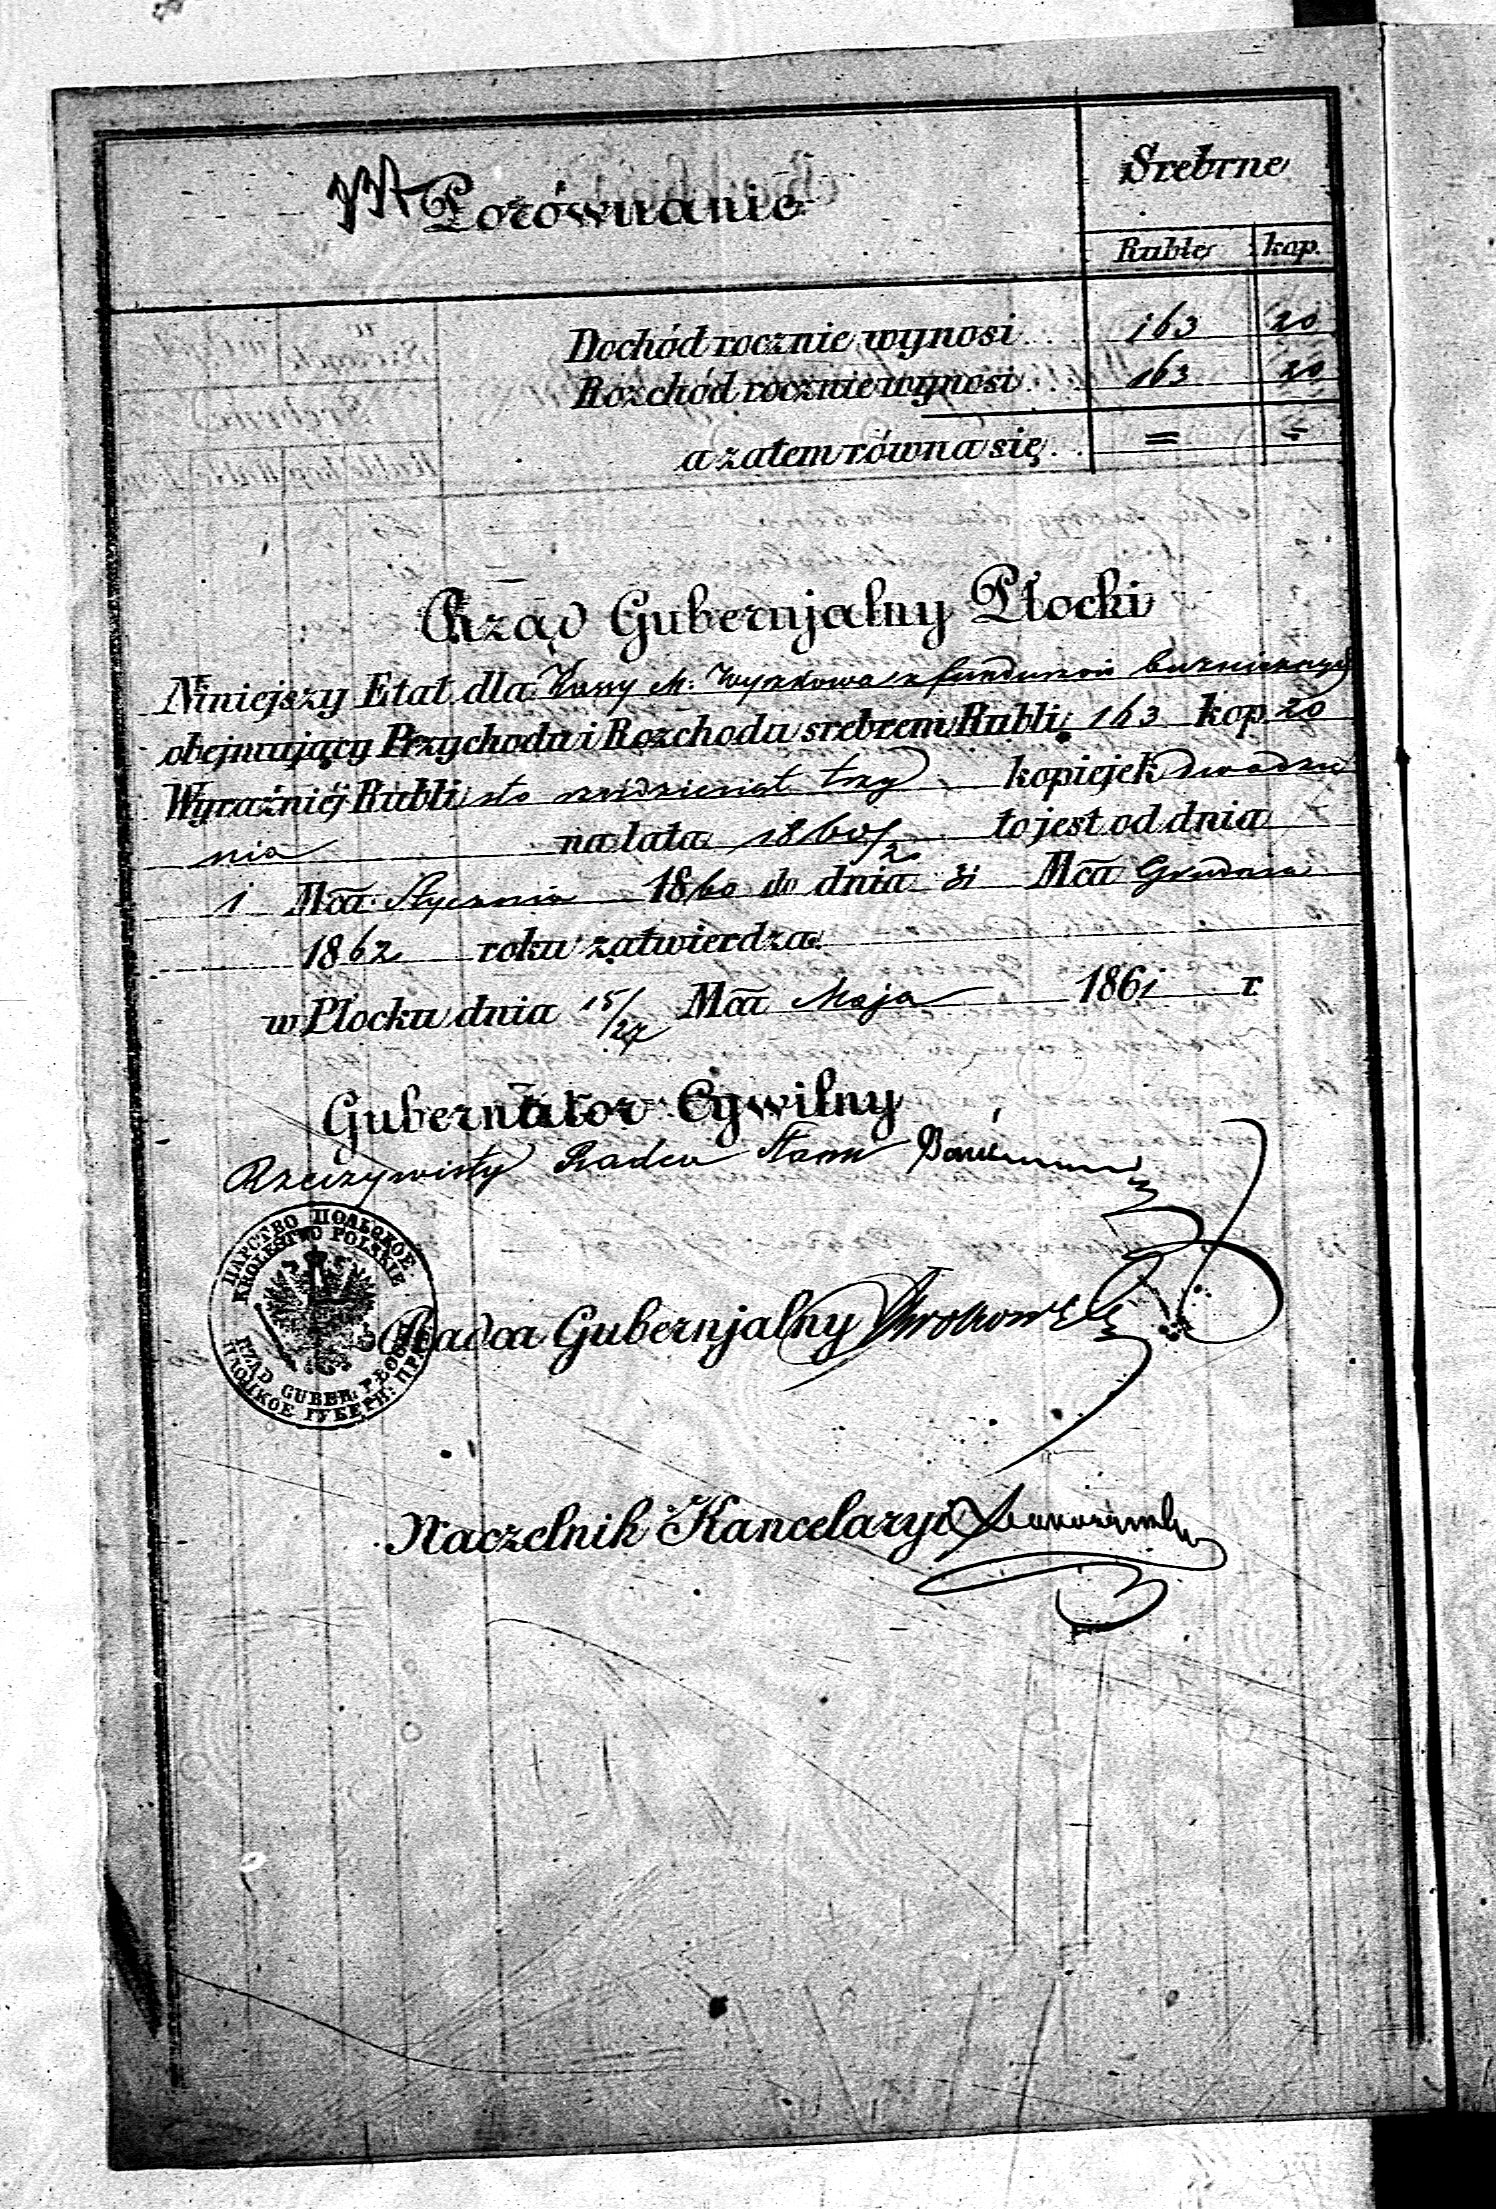 Porównanie
Srebrne
Ruble kop.
Dochód rocznie wynosi 163 20
Rozchód rocznie wynosi 163 20
a zatem równa się = ÷
Rząd Gubernjalny Płocki
Niniejszy Etat dla Kassy M. Wyszkowa z funduszów
obejmujący Przychodu i Rozchodu srebrem Rubli 163 kop 20
Wyraźniéj Rubli sto sześdziesiąt trzy kopiejek dwadzie
na lata 1860/2 to jest od dnia
1 Mca Stycznia 1860 do dnia 31 Mca Grudnia
1862 roku zatwierdza.
w Płocku dnia 15/27 Mca Maja 1861 r
Gubernator Cywilny
Rzeczywisty Radca Stanu
ЦАРСТВО ПОЛЬСКОЕ
KRÓLESTWO POLSKIE
Radca Gubernjalny
RZĄD GUBER: PŁOC
ПЛОЦКОЕ ГУБЕРН: ПРА
Naczelnik Kancelaryi